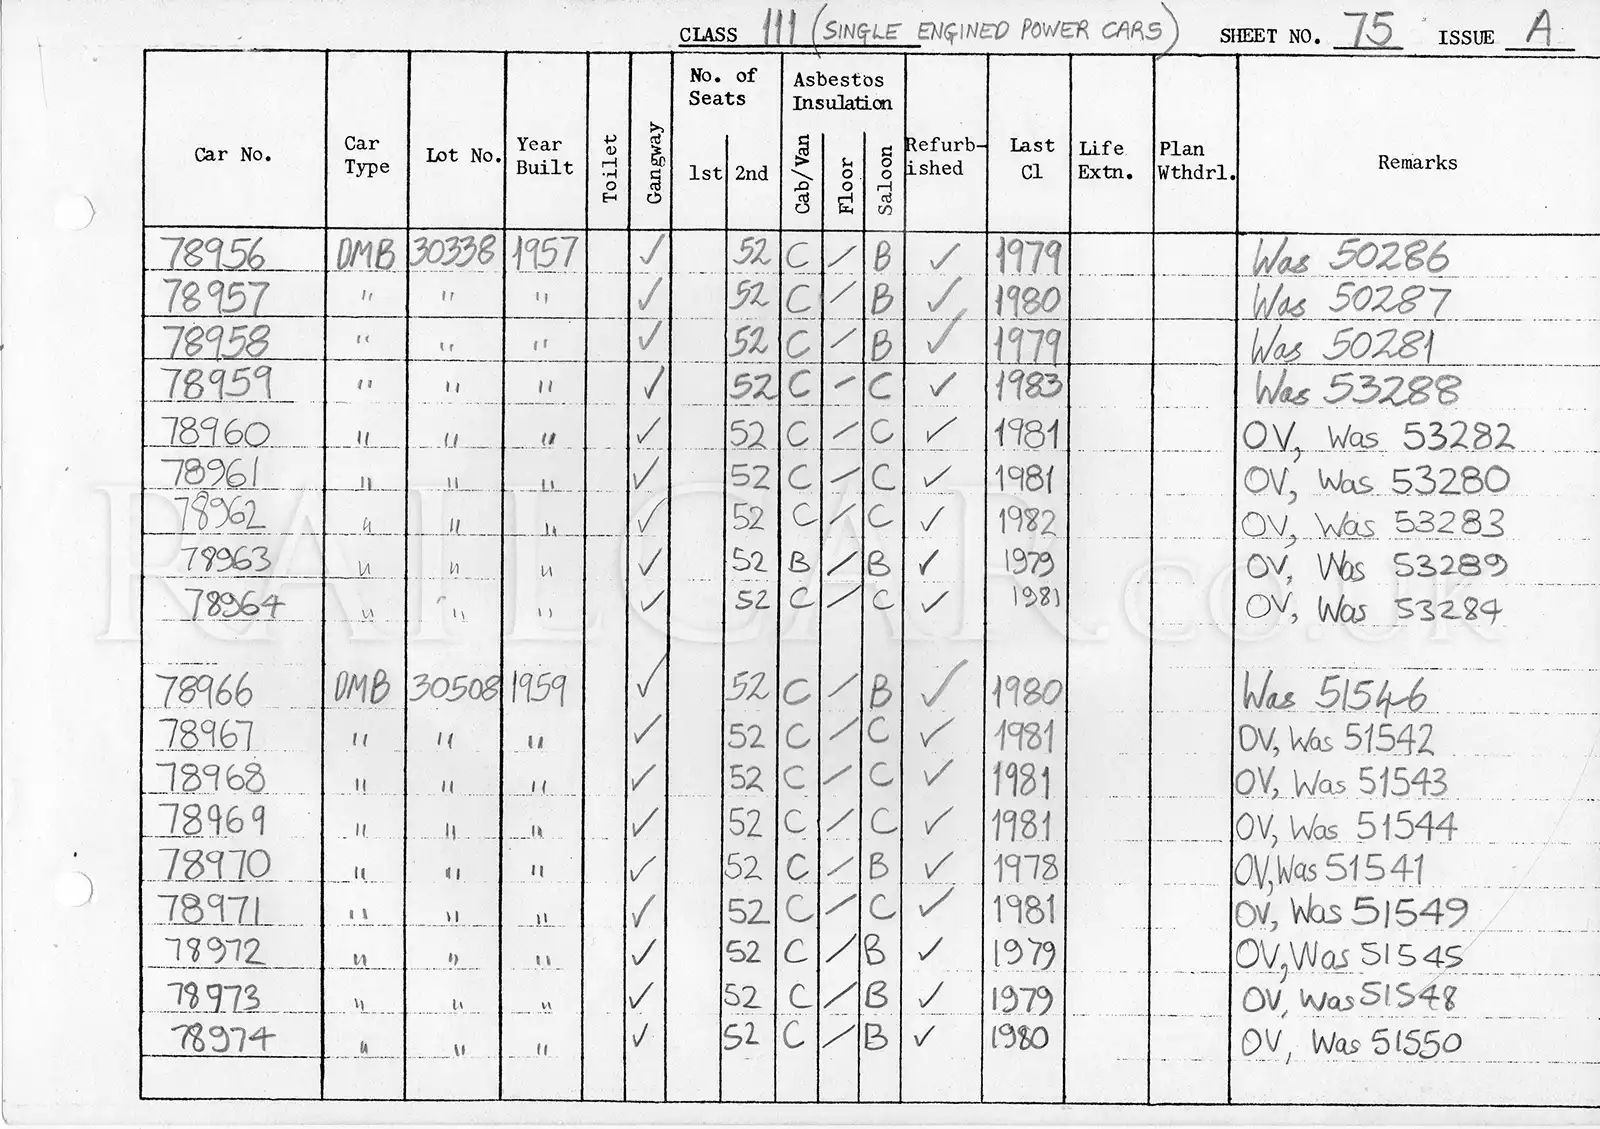 CLASS 111 (SINGLE ENGINED POWER CARS) SHEET NO. 75 ISSUE A
Car No. Car Type Lot No. Year Built Toilet Gangway No. of Seats 1st 2nd Asbestos Insulation Cab/Van Floor Saloon Refurb-ished Last Cl Life Extn. Plan Wthdrl. Remarks
78956 DMB 30338 1957 ✓ 52 C / B ✓ 1979 Was 50286
78957 " " " ✓ 52 C / B ✓ 1980 Was 50287
78958 " " " ✓ 52 C / B ✓ 1979 Was 50281
78959 " " " ✓ 52 C / C ✓ 1983 Was 53288
78960 " " " ✓ 52 C / C ✓ 1981 OV, Was 53282
78961 " " " ✓ 52 C / C ✓ 1981 OV, Was 53280
78962 " " " ✓ 52 C / C ✓ 1982 OV, Was 53283
78963 " " " ✓ 52 B / B ✓ 1979 OV, Was 53289
78964 " " " ✓ 52 C / C ✓ 1981 OV, Was 53284
78966 DMB 30508 1959 ✓ 52 C / B ✓ 1980 Was 51546
78967 " " " ✓ 52 C / C ✓ 1981 OV, Was 51542
78968 " " " ✓ 52 C / C ✓ 1981 OV, Was 51543
78969 " " " ✓ 52 C / C ✓ 1981 OV, Was 51544
78970 " " " ✓ 52 C / B ✓ 1978 OV, Was 51541
78971 " " " ✓ 52 C / C ✓ 1981 OV, Was 51549
78972 " " " ✓ 52 C / B ✓ 1979 OV, Was 51545
78973 " " " ✓ 52 C / B ✓ 1979 OV, Was 51548
78974 " " " ✓ 52 C / B ✓ 1980 OV, Was 51550
RAILCAR.co.uk